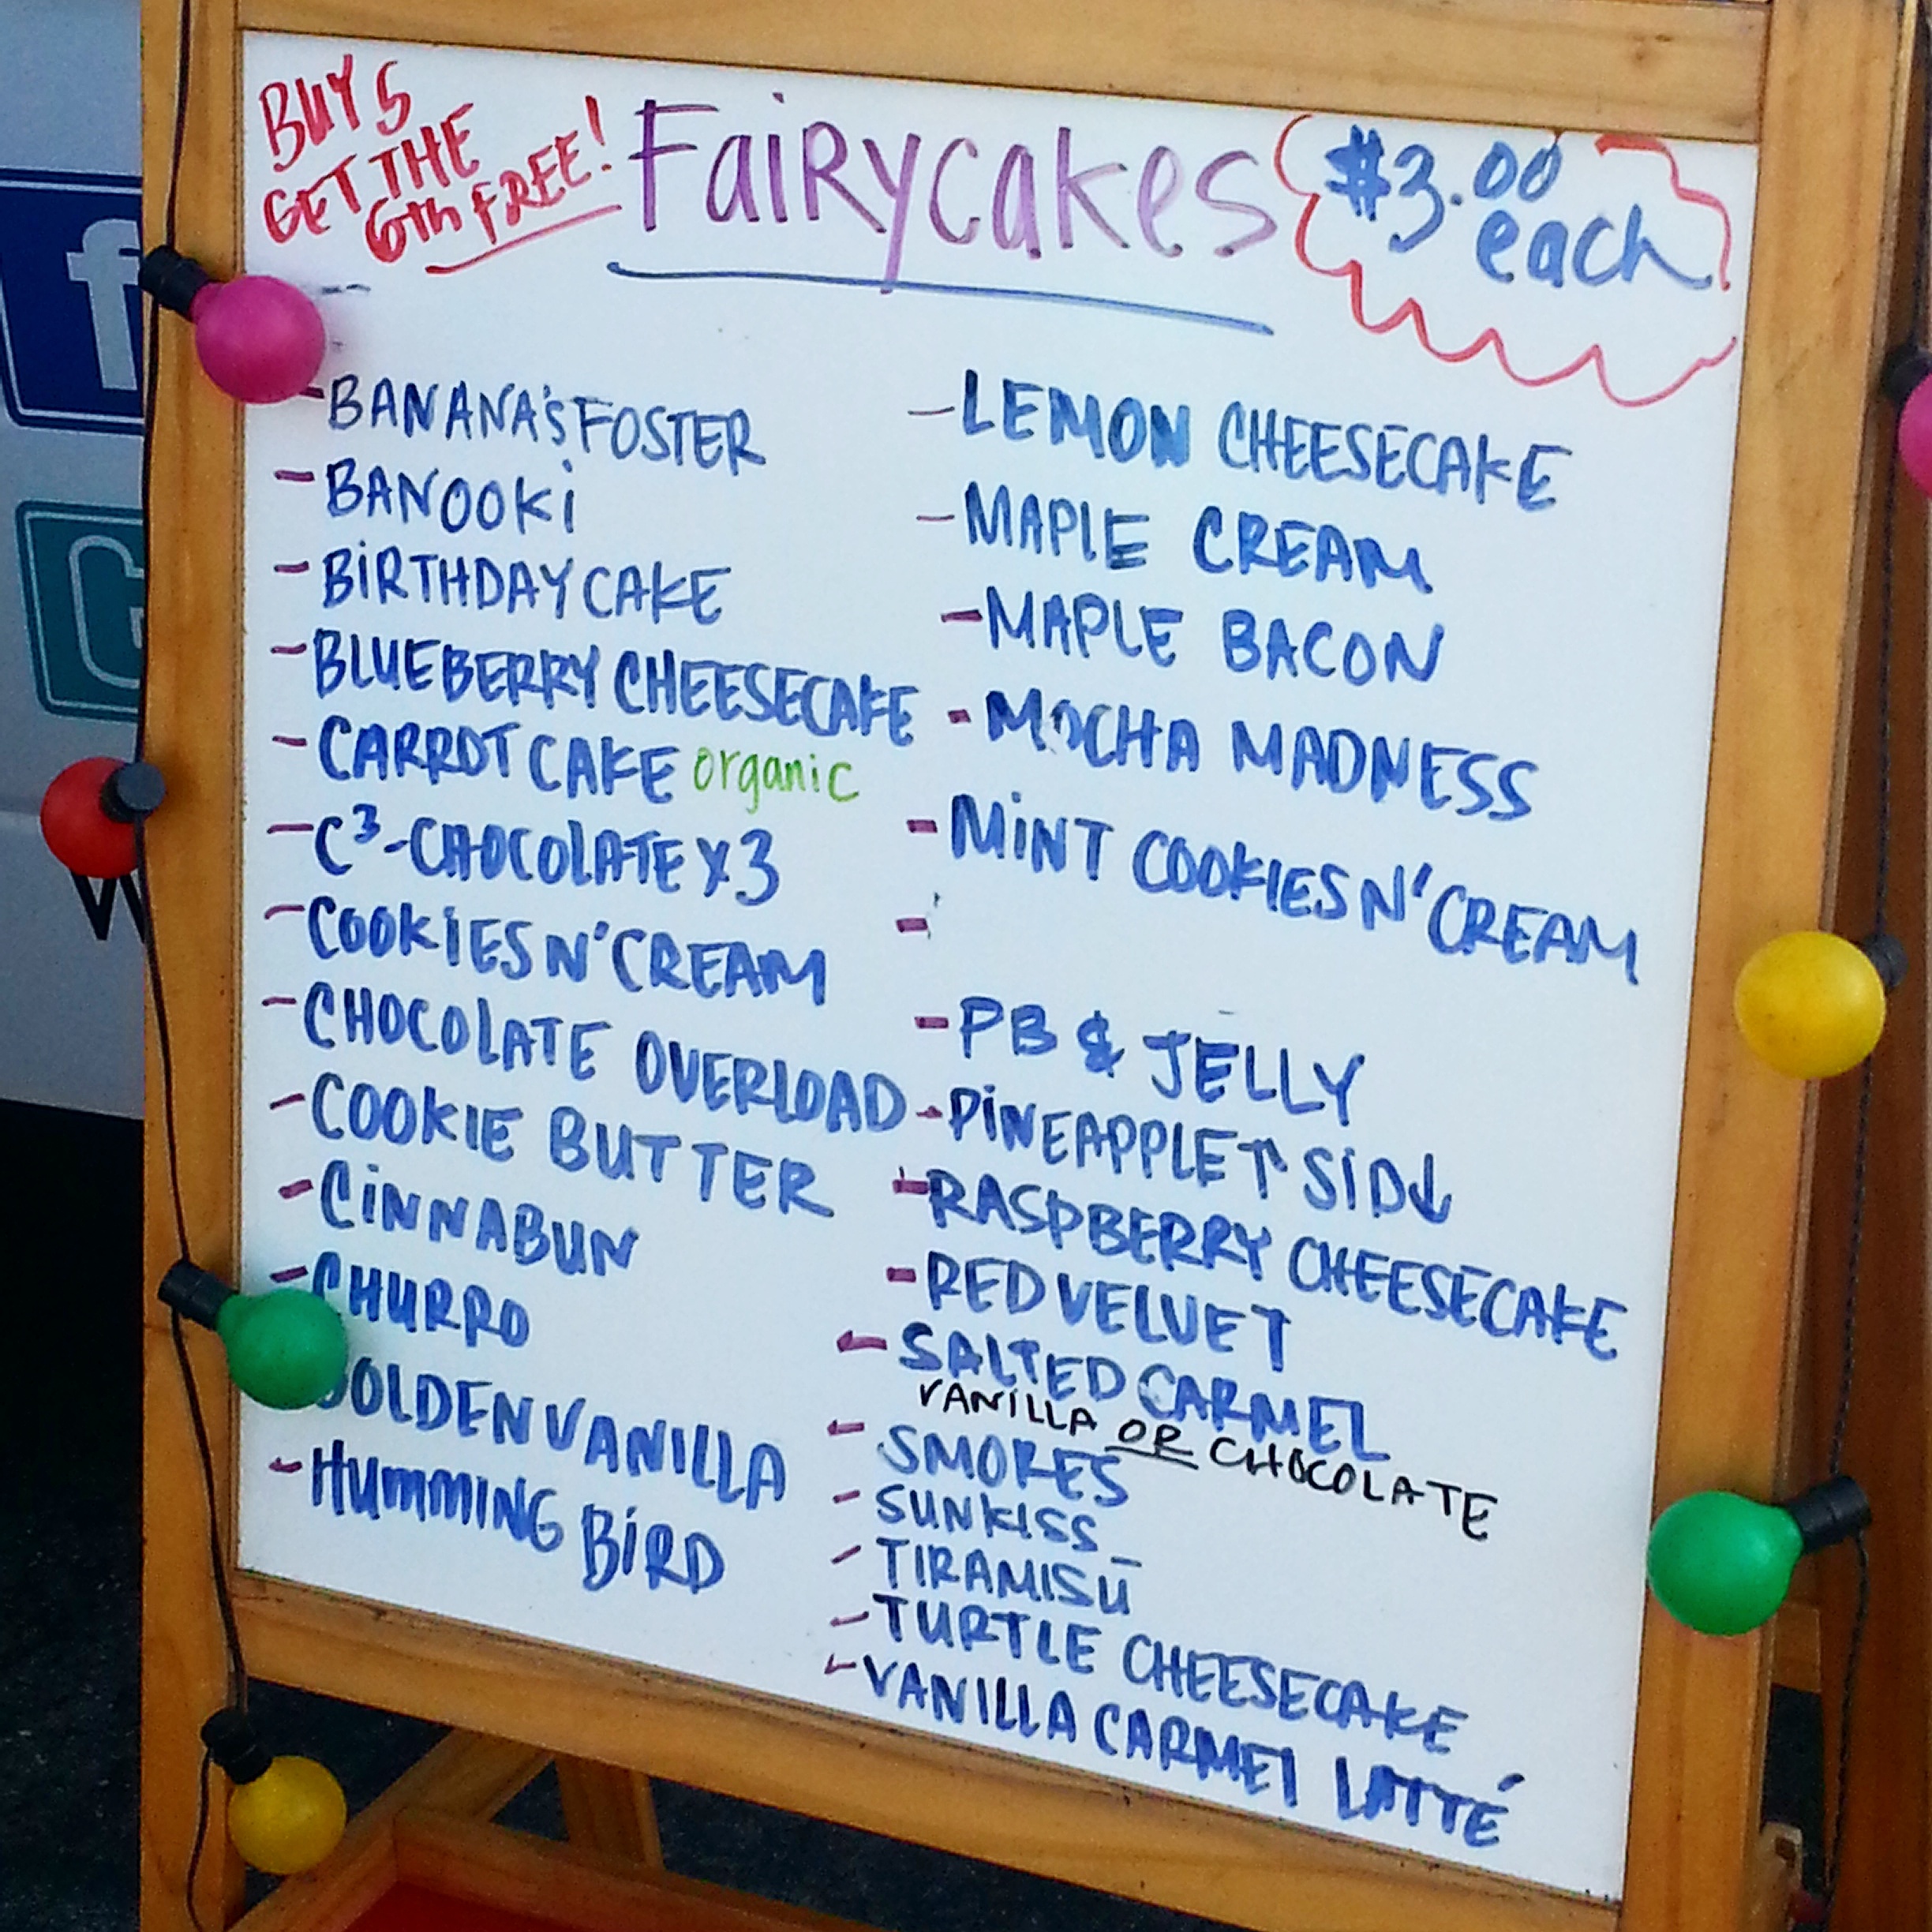 BUY 5
GET THE
6th FREE!
FaiRycakes
$3.00
each
- BANANA'S FOSTER
- BANOOKi
- BiRTHDAY CAKE
- BLUEBERRY CHEESECAKE
- CARROT CAKE organic
- C³-CHOCOLATE X3
- COOKIES N' CREAM
- CHOCOLATE OVERLOAD
- COOKIE BUTTER
- CiNNABUN
- CHURRO
GOLDEN VANILLA
- HummING BiRD
- LEMON CHEESECAKE
- MAPLE CREAM
- MAPLE BACON
- MOCHA MADNESS
- MiNT COOKIES N' CREAM
-
- PB & JELLY
- PiNEAPPLE ↑ SiD↓
- RASPBERRY CHEESECAKE
- RED VELVET
- SALTED CARMEL
VANILLA OR CHOCOLATE
- SMORES
- SUNKISS
- TIRAMISū
- TURTLE CHEESECAKE
- VANILLA CARMEL LATTÉ
f
W